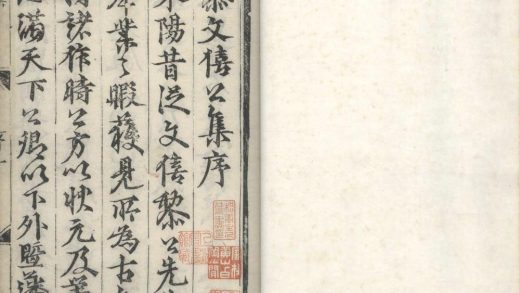 黎文僖公集序
東陽昔從文僖黎公先
業之暇獲見所為古
諸作時公方以狀元及第
滿天下公卿以下外暨藩
序 一